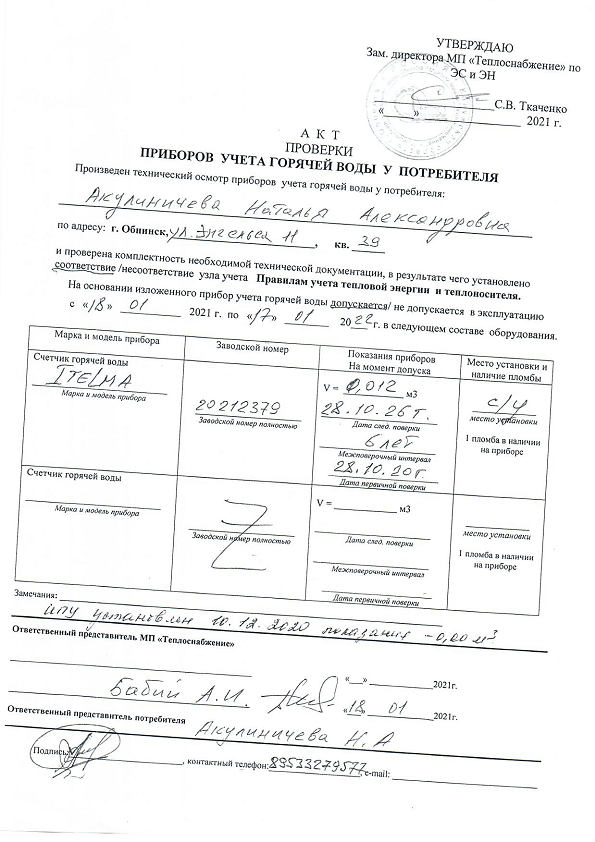 УТВЕРЖДАЮ
Зам. директора МП «Теплоснабжение» по
ЭС и ЭН
С.В. Ткаченко
«____» ____________ 2021 г.
А К Т
ПРОВЕРКИ
ПРИБОРОВ УЧЕТА ГОРЯЧЕЙ ВОДЫ У ПОТРЕБИТЕЛЯ
Произведен технический осмотр приборов учета горячей воды у потребителя:
Акулиничева Наталья Александровна
по адресу: г. Обнинск, ул. Энгельса 11, кв. 39
и проверена комплектность необходимой технической документации, в результате чего установлено
соответствие /несоответствие узла учета Правилам учета тепловой энергии и теплоносителя.
На основании изложенного прибор учета горячей воды допускается/ не допускается в эксплуатацию
с «18» 01 2021 г. по «17» 01 2022 г. в следующем составе оборудования.
Марка и модель прибора
Заводской номер
Показания приборов
На момент допуска
Место установки и
наличие пломбы
Счетчик горячей воды
ITELMA
Марка и модель прибора
20212379
Заводской номер полностью
V = 0,012 м3
28.10.26г.
Дата след. поверки
6 лет
Межповерочный интервал
28.10.20г.
Дата первичной поверки
с/у
место установки
1 пломба в наличии
на приборе
Счетчик горячей воды
Марка и модель прибора
Z
Заводской номер полностью
V = ____________ м3
Дата след. поверки
Межповерочный интервал
Дата первичной поверки
место установки
1 пломба в наличии
на приборе
Замечания:
ИПУ установлен 10.12.2020 показания -0,00 м³
Ответственный представитель МП «Теплоснабжение»
«__» ____________2021г.
Бабий А.И. «18» 01 2021г.
Ответственный представитель потребителя Акулиничева Н.А
Подпись: ____________, контактный телефон: 89533279577, e-mail: ____________